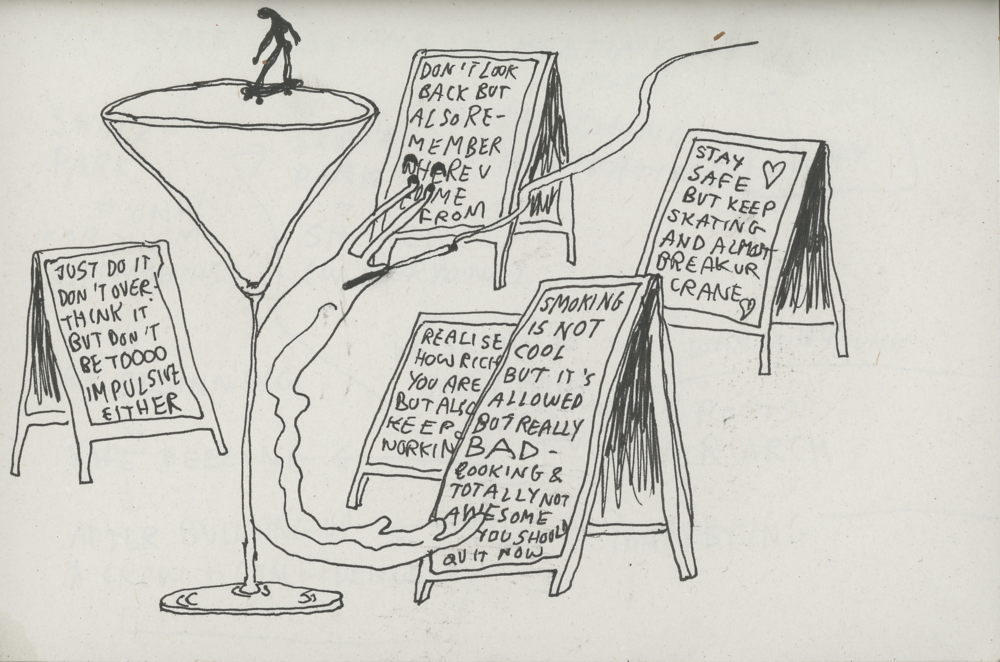 DON'T LOOK
BACK BUT
ALSO RE-
MEMBER
WHERE U
COME
FROM
STAY
SAFE
BUT KEEP
SKATING
AND ALMOST
BREAK UR
CRANE
JUST DO IT
DON'T OVER-
THINK IT
BUT DON'T
BE TOOOO
IMPULSIVE
EITHER
REALISE
HOW RICH
YOU ARE
BUT ALSO
KEEP
WORKIN
SMOKING
IS NOT
COOL
BUT IT'S
ALLOWED
BUT REALLY
BAD-
LOOKING &
TOTALLY NOT
AWESOME
YOU SHOULD
QUIT NOW